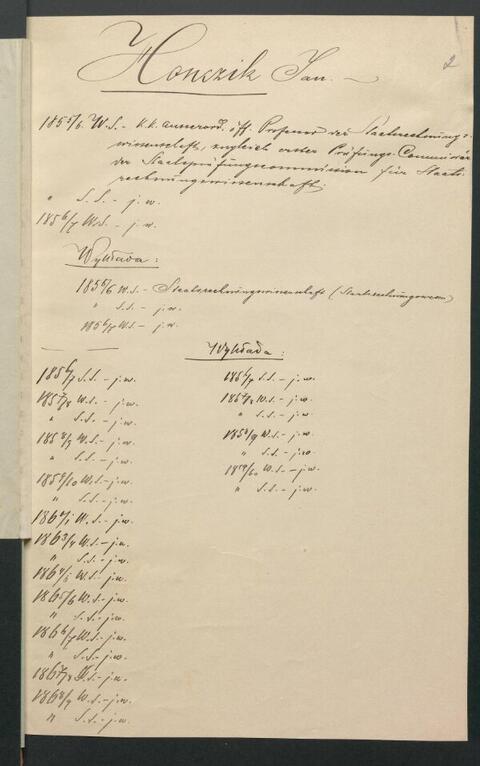 Honczik Jan. —
2
1855/6 W.S. - k.k. ausserord. öff. Professor der Staatsrechnungs-
wissenschaft, zugleich erster Prüfungs-Commissär
der Staatsprüfungscommission für Staats-
rechnungswissenschaft.
" S.S. - j.w.
1856/7 W.S. - j.w.
Wykłada:
1855/6 W.S. - Staatsrechnungswissenschaft (Staatsrechnungswesen)
" S.S. - j.w.
1856/7 W.S. - j.w.
Wykłada:
1856/7 S.S. - j.w.
1857/8 W.S. - j.w.
" S.S. - j.w.
1858/9 W.S. - j.w.
" S.S. - j.w.
1859/60 W.S. - j.w.
" S.S. - j.w.
1860/1 W.S. - j.w.
1863/4 W.S. - j.w.
" S.S. - j.w.
1864/5 W.S. - j.w.
1865/6 W.S. - j.w.
" S.S. - j.w.
1866/7 W.S. - j.w.
" S.S. - j.w.
1867/8 S.S. - j.w.
1868/9 W.S. - j.w.
" S.S. - j.w.
1856/7 S.S. - j.w.
1857/8 W.S. - j.w.
" S.S. - j.w.
1858/9 W.S. - j.w.
" S.S. - j.w.
1859/60 W.S. - j.w.
" S.S. - j.w.